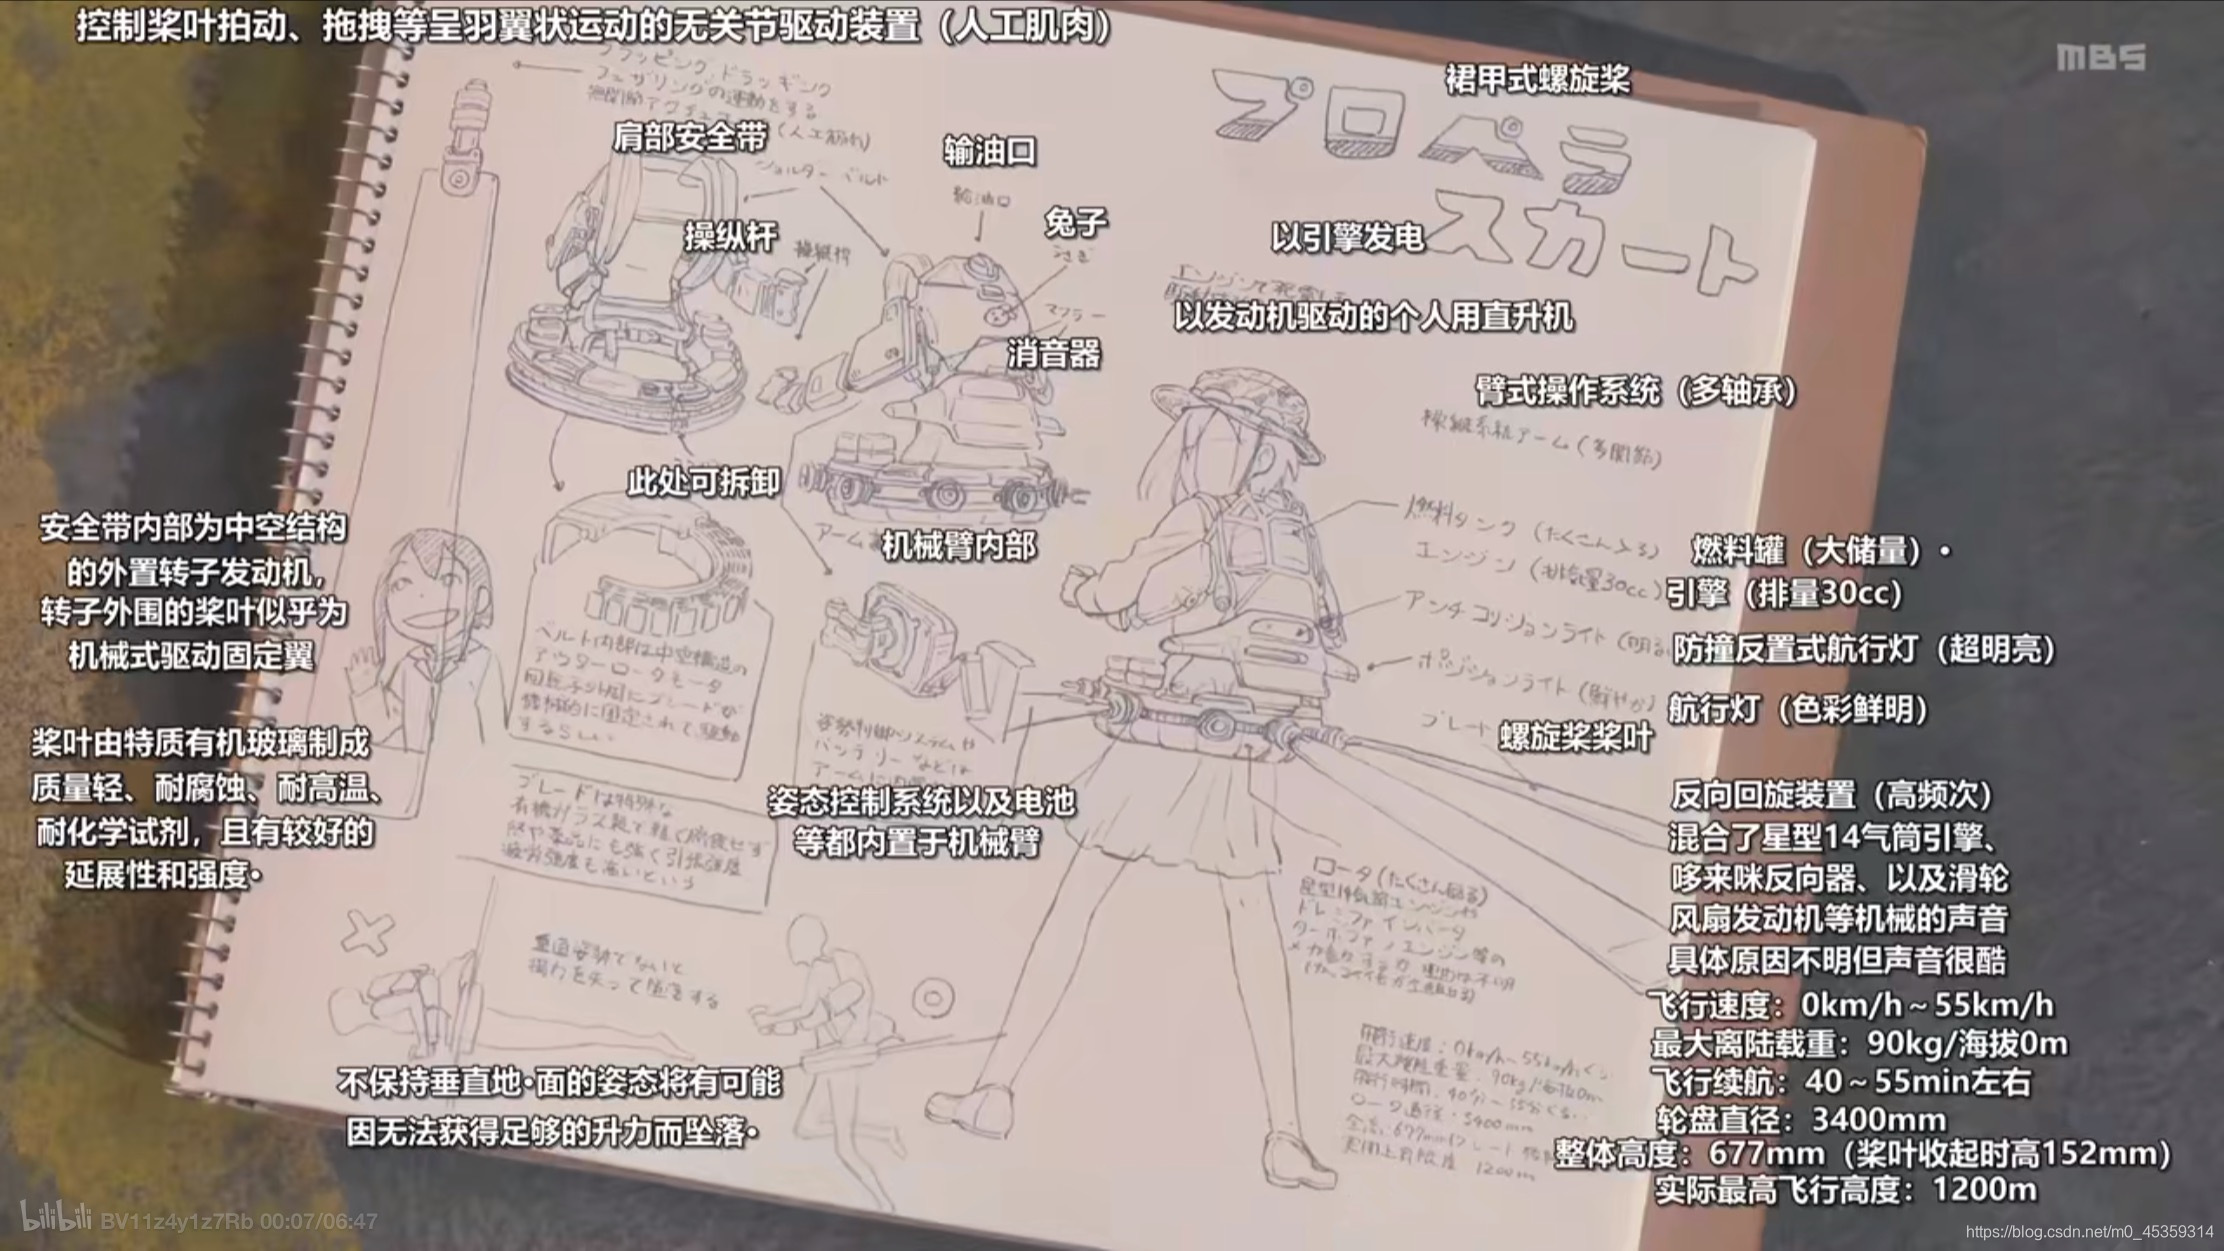 控制桨叶拍动、拖拽等呈羽翼状运动的无关节驱动装置（人工肌肉）
MBS
フラッピング ドラッギング
フェザリングの運動をする
（人工筋肉）
裙甲式螺旋桨
プロペラ
スカート
肩部安全带
ショルダーベルト
输油口
給油口
操纵杆
操縦桿
兔子
うさぎ
マフラー
消音器
以引擎发电
エンジンで発電する
以发动机驱动的个人用直升机
臂式操作系统（多轴承）
操縦系統アーム（多関節）
此处可拆卸
アーム
机械臂内部
安全带内部为中空结构
的外置转子发动机，
转子外围的桨叶似乎为
机械式驱动固定翼
燃料タンク（たくさん入る）
エンジン（排気量30cc）
アンチコリジョンライト（明る
ポジションライト（鮮やか）
ブレード
燃料罐（大储量）·
引擎（排量30cc）
防撞反置式航行灯（超明亮）
航行灯（色彩鲜明）
螺旋桨桨叶
ベルト内部は中空構造の
アウターローターモータ
回転子外周にブレードが
機械的に固定されて駆動
するらしい
桨叶由特质有机玻璃制成
质量轻、耐腐蚀、耐高温、
耐化学试剂，且有较好的
延展性和强度·
ブレードは特殊な
有機ガラス製で軽く腐食せず
熱や薬品にも強く引張強度
疲労強度も高いという
姿勢制御システムや
バッテリーなどは
アームに内蔵
姿态控制系统以及电池
等都内置于机械臂
反向回旋装置（高频次）
混合了星型14气筒引擎、
哆来咪反向器、以及滑轮
风扇发动机等机械的声音
具体原因不明但声音很酷
ロータ（たくさん回る）
星型14気筒エンジンや
ドレミファインバータ
ターボファンエンジン等の
垂直姿勢でないと
揚力を失って墜落する
不保持垂直地·面的姿态将有可能
因无法获得足够的升力而坠落·
飛行速度：0km/h～55km/hくらい
最大離陸重量：90kg/海抜0m
飛行時間：40分～55分くらい
ロータ直径：3400mm
全高：677mm（ブレード
実用上昇限度 1200m
飞行速度：0km/h～55km/h
最大离陆载重：90kg/海拔0m
飞行续航：40～55min左右
轮盘直径：3400mm
整体高度：677mm（桨叶收起时高152mm）
实际最高飞行高度：1200m
bilibili BV11z4y1z7Rb 00:07/06:47
https://blog.csdn.net/m0_45359314